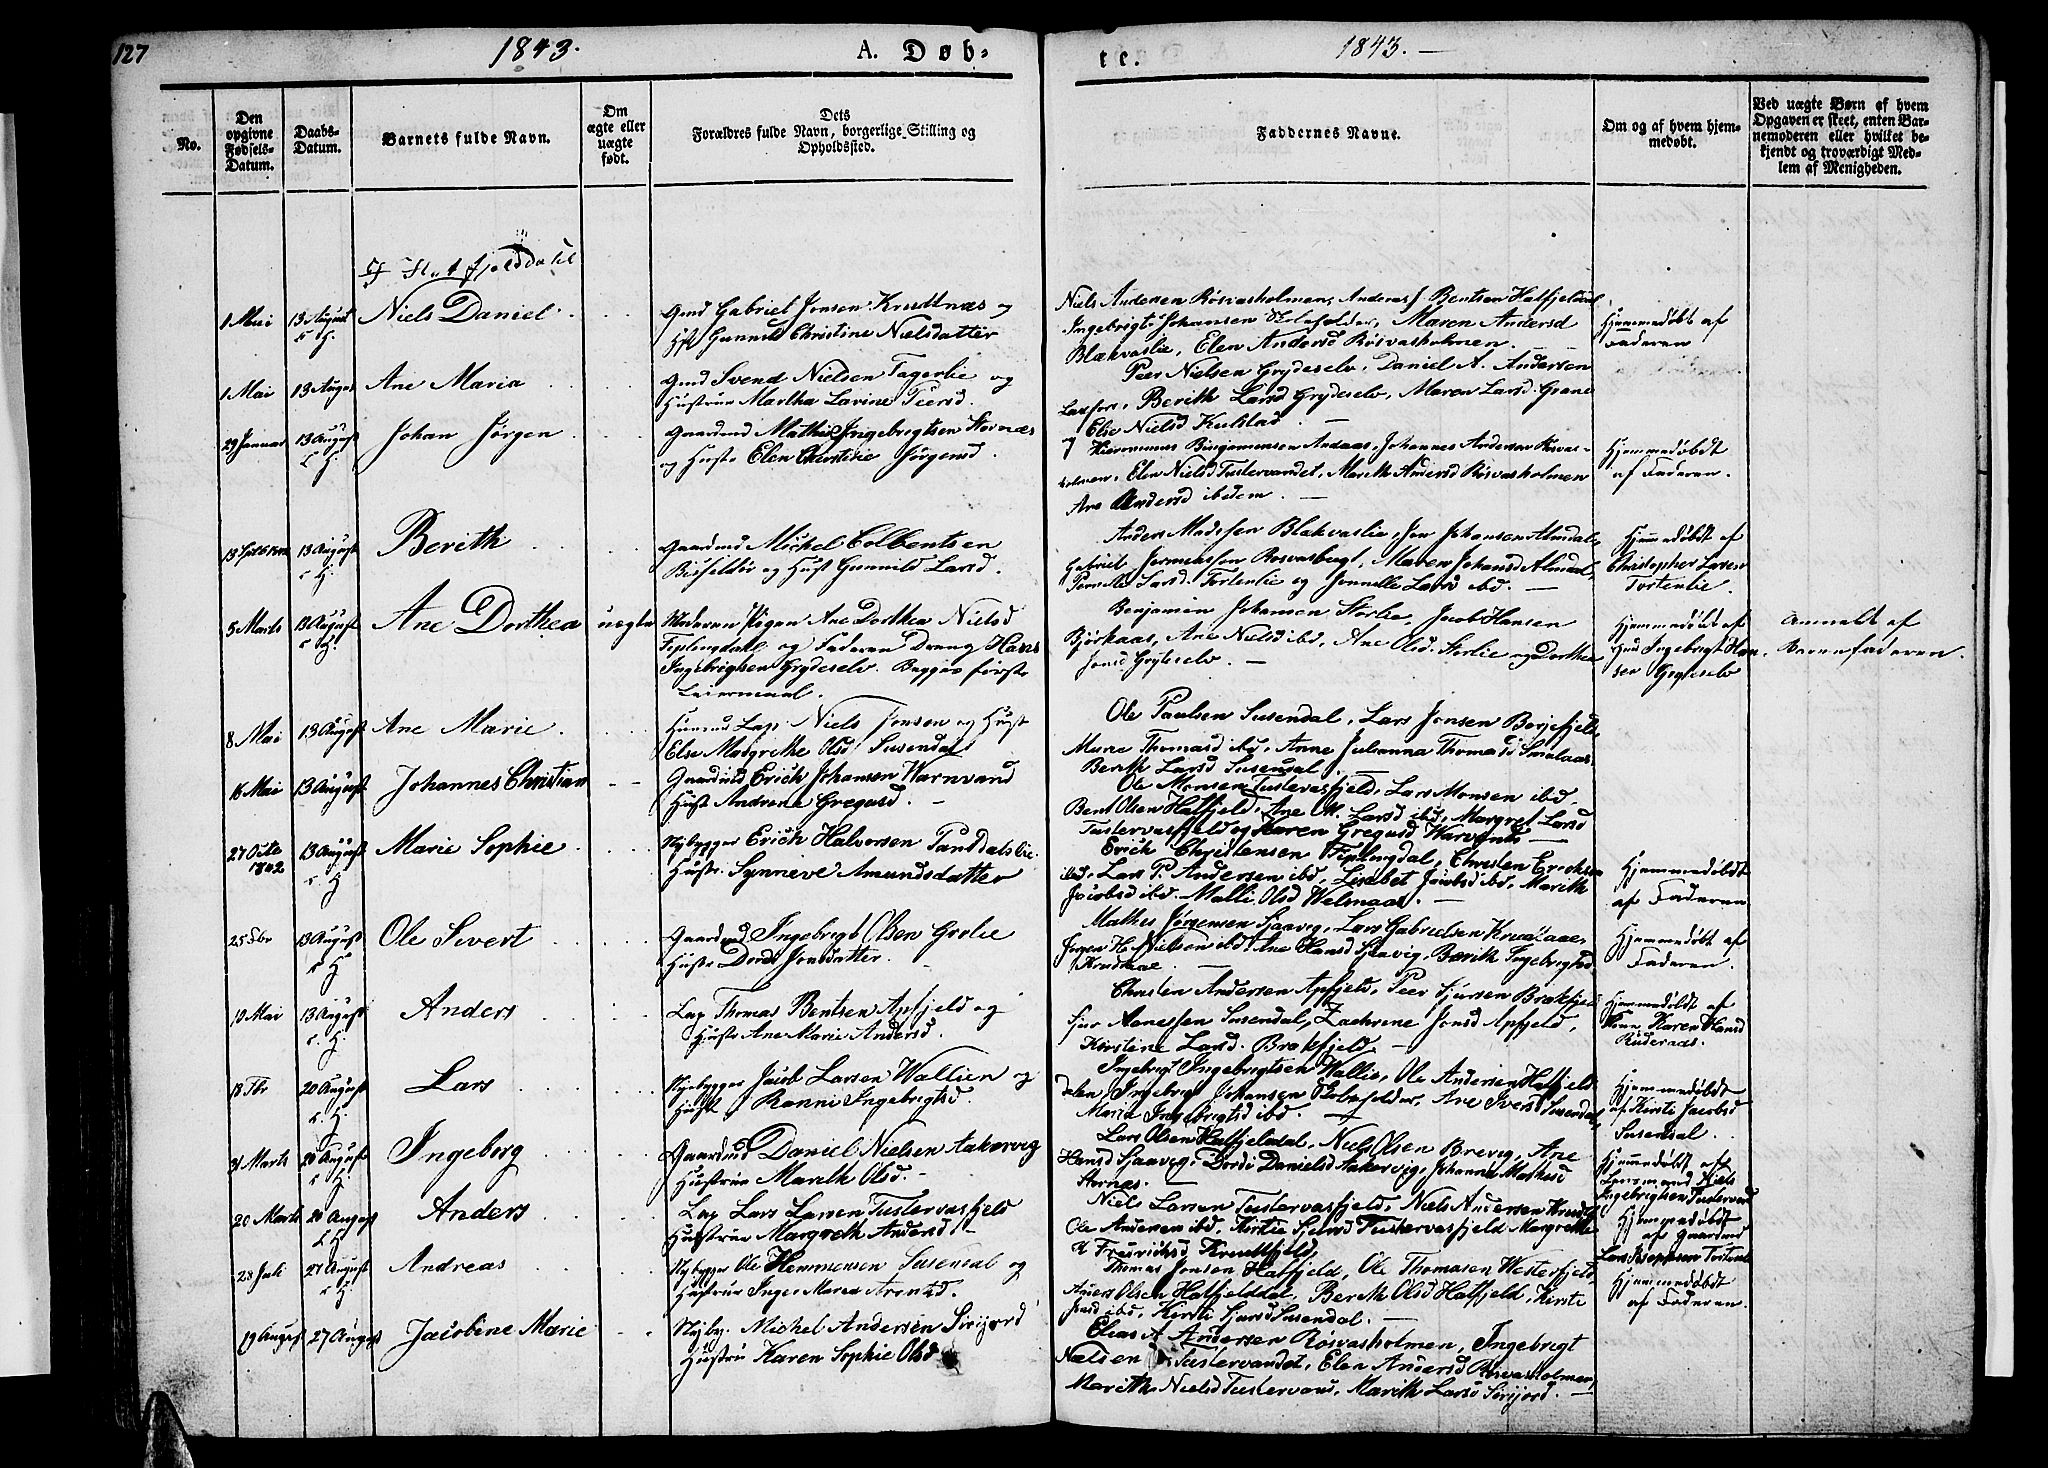 127
1843.
A. Døb-
te.
1843. —
No.
Den opgivne Fødsels-Datum.
Daabs-Datum.
Barnets fulde Navn.
Om ægte eller uægte født.
Dets
Forældres fulde Navn, borgerlige Stilling og
Opholdssted.
Faddernes Navne.
Om og af hvem hjem-
medøbt.
Ved uægte Børn af hvem
Opgaven er skeet, enten Bar-
nemoderen eller hvilket be-
kjendt og troværdigt Med-
lem af Menigheden.
1 Mai
13 August
Niels Daniel
Gmd Gabriel Jonsen Krudtnæs og
Hst Gunnild Christine Nielsdatter
Niels Andersen Røsvasholmen, Anders J. Bentsen Hatfjeldal
Ingebrigt Johansen Skoleholder, Maren Andersd
Blækvaslie, Elen Andersd Røsvasholmen.
Hjemmedøbt af
Faderen
1 Mai
13 August
Ane Maria
Gmd Svend Nielsen Fagerlie og
Hustrue Martha Lavine Peersd.
Peer Nielsen Grydeselv, Daniel A. Andersen
Laxfors, Berith Larsd Grydeselv, Maren Larsd. Grane
Else Nielsd Kulstad. —
29 Januar
13 August
Johan Jørgen
Gaardmd Mathis Ingebrigtsen Stornæs
og Hustr Elen Christine Jørgensd.
Johannes Andersen Røsvas-
holmen, Elen Nielsd Tustervandet, Marith Andersd Røsvasholmen
Ane Andersd ibidem. —
Hjemmedøbt
af Faderen.
13 August
Berith
Gaardmd Michel Colbentsen
og Hust Gunnild Larsd.
Anders Madssen Blakvaslie, Jon Johansen Almdal,
Gabriel Rosvasbergt, Maren Johansd Almdal,
Pernelle Larsd. Tortenlie og Larsd ibd. —
Hjemmedøbt af
Christopher Larsen
Tortenlie
5 Marts
13 August
Ane Dorthea
uægte
Moderen Pigen Ane Dorthea Nielsd
Fiplingdal og Faderen Dreng Hans
Ingebrigtsen Grydeselv. Begges første
Leiermaal.
Benjamin Johansen Storlie, Jacob Hansen
Bjørkaas, Ane Nielsd ibd, Ane Olsd. Storlie og Dorthea
Jonsd Gryteselv. —
Hjemmedøbt af
Gmd Ingebrigt Han-
sen Grydeselv
Anmeldt af
Barnefaderen.
8 Mai
13 August
Ane Marie
Lap Niels Jonsen og Hust
Else Margrethe Olsd Susendal
Ole Paulsen Susendal, Lars Jonsen Borjefjeld,
Marie Thomasd ibd, Anne Julianna Thomasd
Berith Larsd Susendal. —
16 Mai
13 August
Johannes Christian
Gaardmd Erich Johansen Varnvand
Hustr Andrene Gregusd. —
Ole Monsen Tustervasfjeld, Lars Monsen ibd,
Bent Olsen Hatfjeld, Ane M. Larsd ibd, Margret Larsd
Tustervasfjeld og Karen Gregusd Varvand —
27 Octb
1842
13 August
Marie Sophie
Nybygger Erich Halvorsen Panddalslie
Hustr. Synneve Amundsdatter
Erich Christensen Fiplingdal, Christen Erichsen
ibd, Lars P. Andersen ibd, Lisabet Jacobsd ibd, Marith
Jacobsd ibd. Malli Olsd —
Hjemmedøbt
af Faderen
13 August
Ole Sivert
Gaardmd Ingebrigt Olsen Grolie
Hustr Jonsdatter. —
Mathis Jørgensen Sjaavig, Lars Gabrielsen
Jørgen H. Nielsen ibd, Ane Hansd Sjaavig, Berith Ingebrigtsd
Hjemmedøbt af
Faderen.
10 Mai
13 August
Anders
Lap Thomas Bentsen Apfjeld og
Hustr Ane Marie Andersd.
Christen Andersen Apfjeld, Peer Sjursen Brakfjeld
Sjur Susendal, Zachrine Jonsd Apfjeld,
Kirstine Larsd. Brakfjeld. —
Hjemmedøbt af
Karen Hansd
20 August
Lars
Nybygger Jacob Larsen Wallien og
Hust Ranni Ingebrigtsd.
Ingebrigt Ingebrigtsen Wallie, Ole Andersen Hatfjeld
dalen Ingebrigt Johansen Skoleholder, Ane Iversd Susendal,
Maria Ingebrigtsd ibd. —
Hjemmedøbt
af Kirsti Jacobsd
Susendal
31 Marts
20 August
Ingeborg
Gaardmd Daniel Nielsen Aakervig
Hustrue Marith Olsd. —
Lars Olsen Hatfjeldal, Niels Olsen Brevig, Ane
Hansd Sjaavig, Dordi Danielsd Aakervig, Johanna Mathisd
Stornæs. —
Hjemmedøbt af
Lensmand Niels
Ingebrigtsen Tustervand
20 Marts
20 August
Anders
Lap Lars Larsen Tustervasfjeld
Hustrue Margreth Andersd. —
Niels Larsen Tustervasfjeld, Niels Andersen
Ole Andersen ibd, Kirstie Sjursd Tustervasfjeld Margrethe
Fredrichsd Krudtfjeld,
Hjemmedøbt
af Gaardmd
28 Juli
27 August
Andreas
Nybygger Ole Hemmensen Susendal og
Hustrue Inger Maria
Thomas Jonsen Hatfjeld, Ole Thomasen Westerfjeld
Anders Olsen Hatfjelddal, Berith Olsd Hatfjeld, Kirstie
Jonsd ibd, Kirsti Sjursd Susendal. —
Hjemmedøbt
af Faderen.
19 August
27 August
Jacobine Marie
Nyby. Michel Andersen Sirijord
Hustrue Karen Sophie Olsd
Elias A Andersen Røsvasholmen, Ingebrigt
Nielsen Tustervandet, Elen Andersd Røsvasholmen,
Marith Nielsd Tustervand, Marith Larsd Sirijord. —